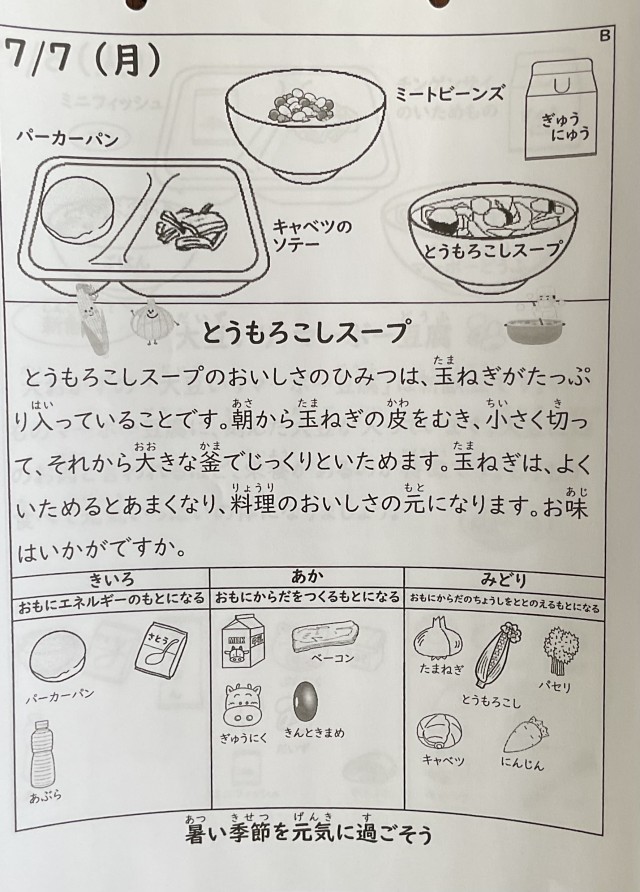 B
7/7（月）
ミートビーンズ
ぎゅう
にゅう
パーカーパン
キャベツの
ソテー
とうもろこしスープ
とうもろこしスープ
とうもろこしスープのおいしさのひみつは、玉ねぎがたっぷ
り入っていることです。朝から玉ねぎの皮をむき、小さく切っ
て、それから大きな釜でじっくりといためます。玉ねぎは、よく
いためるとあまくなり、料理のおいしさの元になります。お味
はいかがですか。
きいろ
おもにエネルギーのもとになる
さとう
パーカーパン
あぶら
あか
おもにからだをつくるもとになる
MILK
ベーコン
ぎゅうにく
きんときまめ
みどり
おもにからだのちょうしをととのえるもとになる
たまねぎ
とうもろこし
パセリ
キャベツ
にんじん
暑い季節を元気に過ごそう